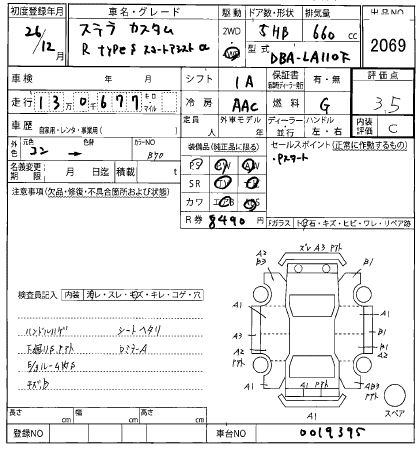 初度登録年月 車名・グレード 駆動 ドア数・形状 排気量 出品NO
26/12 ステラ カスタム 2WD 5HB 660 cc 2069
R typeS スマートアシスト α 4WD 型式 DBA-LA110F
車検 年 月 シフト IA 保証書 有・無 評価点
走行 130677 キロ マイル 冷房 AAC 燃料 G 3.5
車歴 自家用・レンタ・事業用( ) 定員 人 外車モデル 年 ディーラー 並行 ハンドル 左・右 内装評価 C
外色 元色 コン → 色替 カラーNO B70 装備品(純正品に限る) セールスポイント(正常に作動するもの)
PS PW AW ・Pスタート
名義変更期限 月 日迄 積載量 t SR TV
注意事項(欠品・修復・不具合箇所および状態) カワ エアB ABS
R券 8490 円 Fガラス 飛石・キズ・ヒビ・ワレ・リペア跡
ズレ A3
A2 B3 B1
検査員記入 内装 汚レ・スレ・キズ・キレ・コゲ・穴
A1 A1
ハンドルハゲ シートヘタリ
A3 A2
A1 B1
キズB
A2 A1 AB3
A1 スペア
長さ cm 幅 cm 高さ cm
登録NO 車台NO 0019395